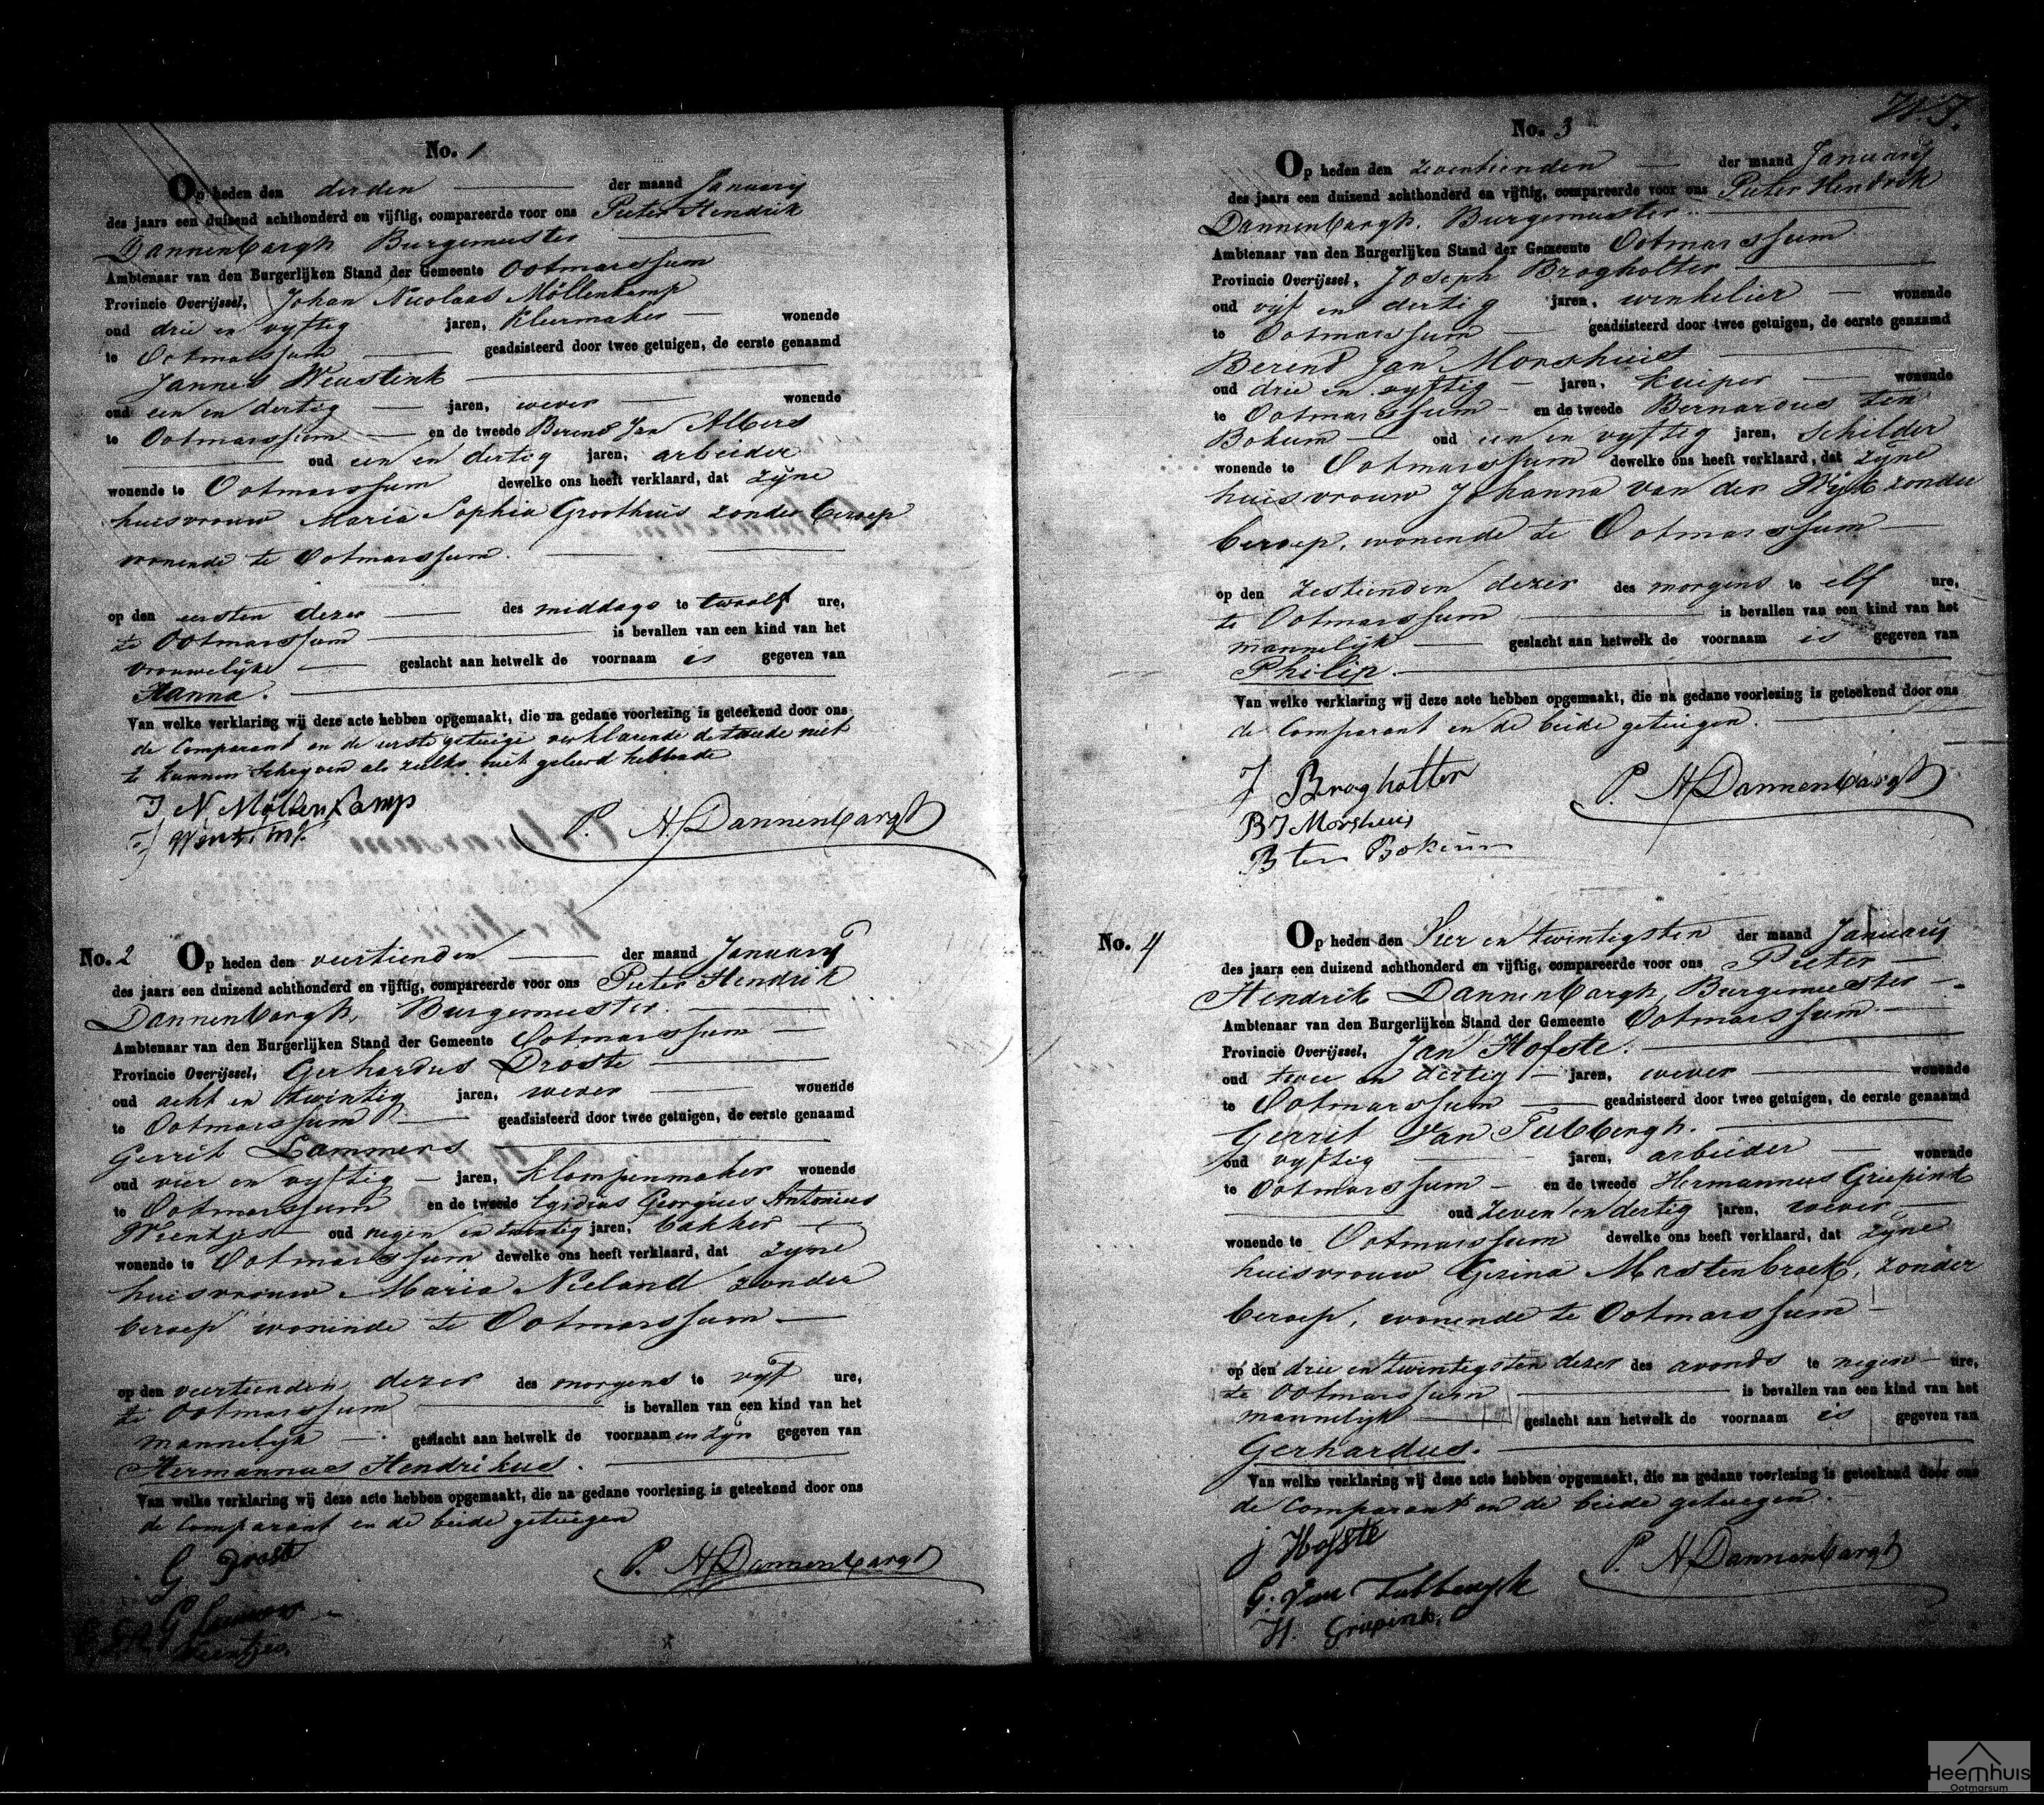 No. 1
Op heden den derden der maand January
des jaars een duizend achthonderd en vijftig, compareerde voor ons Pieter Hendrik
Dannenbargh Burgemeester
Ambtenaar van den Burgerlijken Stand der Gemeente Ootmarssum
Provincie Overijssel, Johan Nicolaas Möllenkamp
oud drie en vyftig jaren, kleermaker wonende
te Ootmarssum geadsisteerd door twee getuigen, de eerste genaamd
Jannes Weustink
oud een en dertig jaren, wever wonende
te Ootmarssum en de tweede Berend Jan Albers
oud een en dertig jaren, arbeider
wonende te Ootmarssum dewelke ons heeft verklaard, dat zyne
huisvrouw Maria Sophia Groothuis zonder beroep
wonende te Ootmarssum.
op den eersten dezer des middags te twaalf ure,
te Ootmarssum is bevallen van een kind van het
vrouwelyke geslacht aan hetwelk de voornaam is gegeven van
Hanna.
Van welke verklaring wij deze acte hebben opgemaakt, die na gedane voorlezing is geteekend door ons
de Comparant en de eerste getuige verklarende de tweede niet
te kunnen schryven als zulks niet geleerd hebbende
J. N. Möllenkamp
P. H. Dannenbargh
No. 2 Op heden den veertienden der maand January
des jaars een duizend achthonderd en vijftig, compareerde voor ons Pieter Hendrik
Dannenbargh, Burgemeester.
Ambtenaar van den Burgerlijken Stand der Gemeente Ootmarssum
Provincie Overijssel, Gerhardus Droste
oud acht en twintig jaren, wever wonende
te Ootmarssum geadsisteerd door twee getuigen, de eerste genaamd
Gerrit Lammers
oud vier en vyftig jaren, klompenmaker wonende
te Ootmarssum en de tweede Egidius Georgius Antonius
Wientjes oud negen en twintig jaren, bakker
wonende te Ootmarssum dewelke ons heeft verklaard, dat zyne
huisvrouw Maria Nieland zonder
beroep wonende te Ootmarssum
op den veertienden dezer des morgens te vyf ure,
te Ootmarssum is bevallen van een kind van het
mannelyk geslacht aan hetwelk de voornaam en zyn gegeven van
Hermannus Hendrikus.
Van welke verklaring wij deze acte hebben opgemaakt, die na gedane voorlezing is geteekend door ons
de Comparant en de beide getuigen
G Droste
P. H. Dannenbargh
G Lammers
Wientjes.
No. 3
Op heden den zeventienden der maand January
des jaars een duizend achthonderd en vijftig, compareerde voor ons Pieter Hendrik
Dannenbargh, Burgemeester.
Ambtenaar van den Burgerlijken Stand der Gemeente Ootmarssum
Provincie Overijssel, Joseph Bragholter
oud vyf en dertig jaren, winkelier wonende
te Ootmarssum geadsisteerd door twee getuigen, de eerste genaamd
Berend Jan Morshuis
oud drie en vyftig jaren, kuiper wonende
te Ootmarssum en de tweede Bernardus ten
Bokum oud een en vyftig jaren, Schilder
wonende te Ootmarssum dewelke ons heeft verklaard, dat zyne
huisvrouw Johanna van der Wyk zonder
beroep, wonende te Ootmarssum
op den zestienden dezer des morgens te elf ure,
te Ootmarssum is bevallen van een kind van het
mannelyk geslacht aan hetwelk de voornaam is gegeven van
Philip.
Van welke verklaring wij deze acte hebben opgemaakt, die na gedane voorlezing is geteekend door ons
de Comparant en de beide getuigen.
J Bragholter
P. H. Dannenbargh
B J Morshuis
B ten Bokum
No. 4 Op heden den Vier en twintigsten der maand January
des jaars een duizend achthonderd en vijftig, compareerde voor ons Pieter
Hendrik Dannenbargh, Burgemeester
Ambtenaar van den Burgerlijken Stand der Gemeente Ootmarssum
Provincie Overijssel, Jan Hofste.
oud twee en dertig jaren, wever wonende
te Ootmarssum geadsisteerd door twee getuigen, de eerste genaamd
Gerrit Van Tubbergh.
oud vyftig jaren, arbeider wonende
te Ootmarssum en de tweede Hermannus Griepink
oud zeven en dertig jaren, wever
wonende te Ootmarssum dewelke ons heeft verklaard, dat zyne
huisvrouw Gesina Mastenbroek, zonder
beroep, wonende te Ootmarssum
op den drie en twintigsten dezer des avonds te negen ure,
te Ootmarssum is bevallen van een kind van het
mannelyk geslacht aan hetwelk de voornaam is gegeven van
Gerhardus.
Van welke verklaring wij deze acte hebben opgemaakt, die na gedane voorlezing is geteekend door ons
de Comparant en de beide getuigen.
J Hofste
P. H. Dannenbargh
G. Van Tubbergh
H. Griepink.
Heemhuis
Ootmarsum